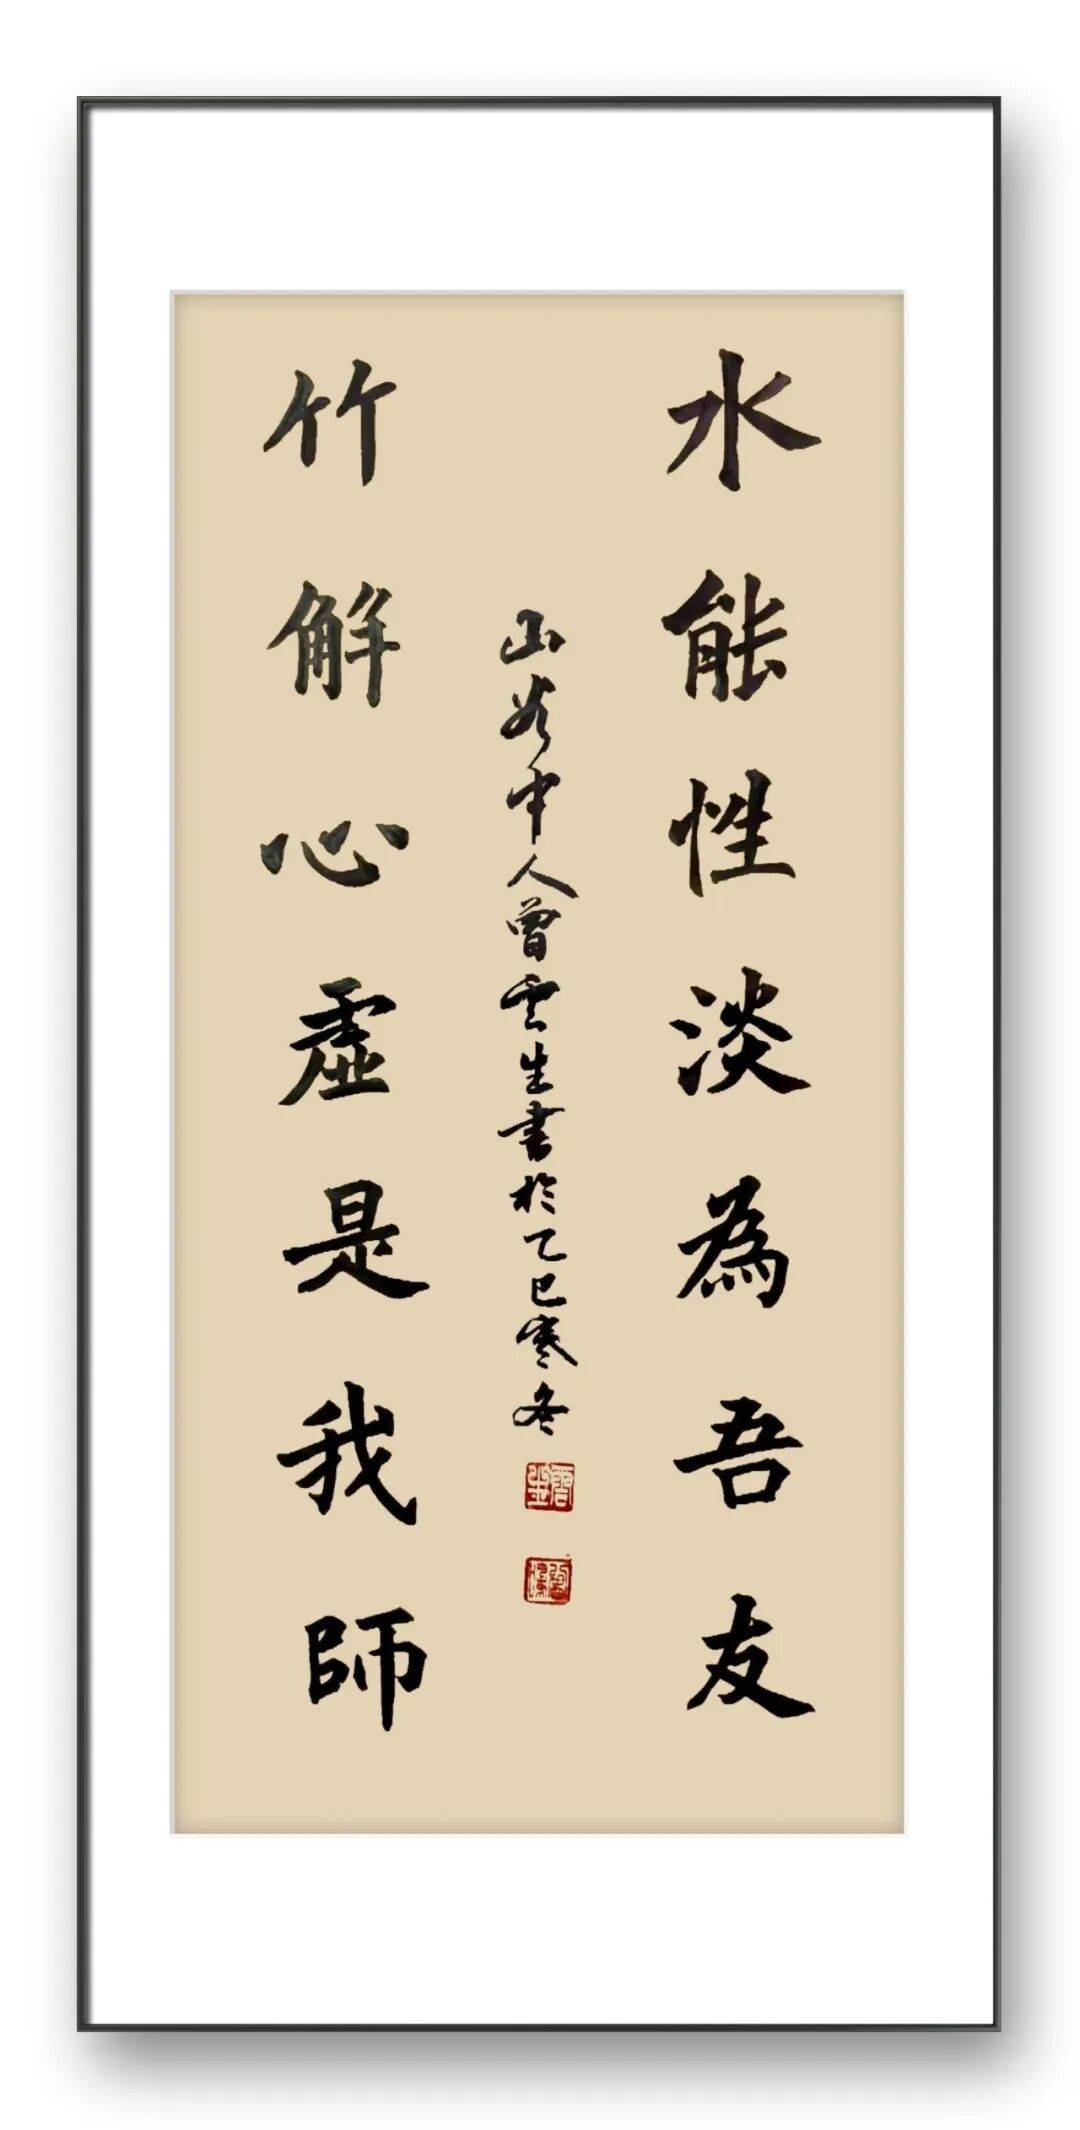 水能性淡為吾友
山谷中人曾雲生書於乙巳寒冬
竹解心虛是我師